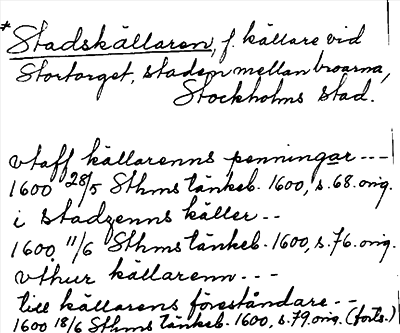 * Stadskällaren, f. källare vid
Stortorget, staden mellan broarna,
Stockholms stad.
vtaff källarenns penningar ---
1600 28/5 Sthms tänkeb. 1600, s. 68. orig.
i stadzenns käller --
1600, 11/6 Sthms tänkeb. 1600, s. 76. orig.
vthur källarenn ---
till källarens föreståndare --
1600 18/6 Sthms tänkeb. 1600, s. 79. orig. (forts.)